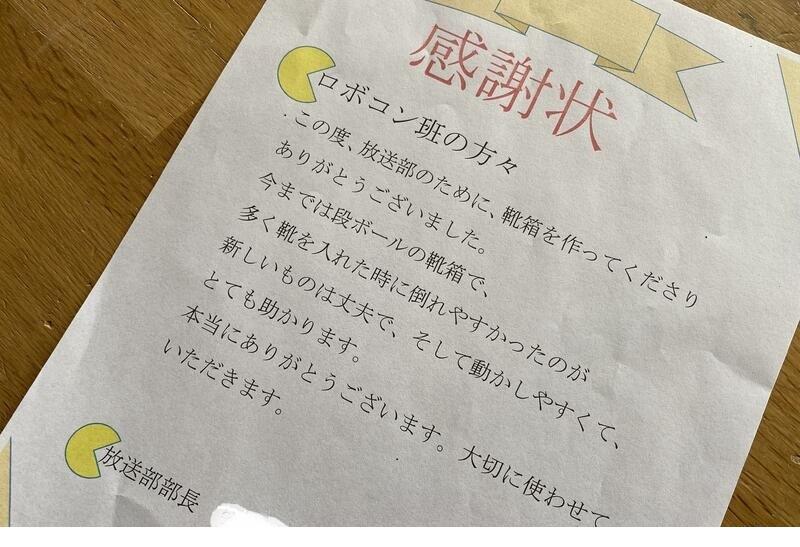 感謝状
ロボコン班の方々
この度、放送部のために、靴箱を作ってくださり
ありがとうございました。
今までは段ボールの靴箱で、
多く靴を入れた時に倒れやすかったのが
新しいものは丈夫で、そして動かしやすくて、
とても助かります。
本当にありがとうございます。大切に使わせて
いただきます。
放送部部長